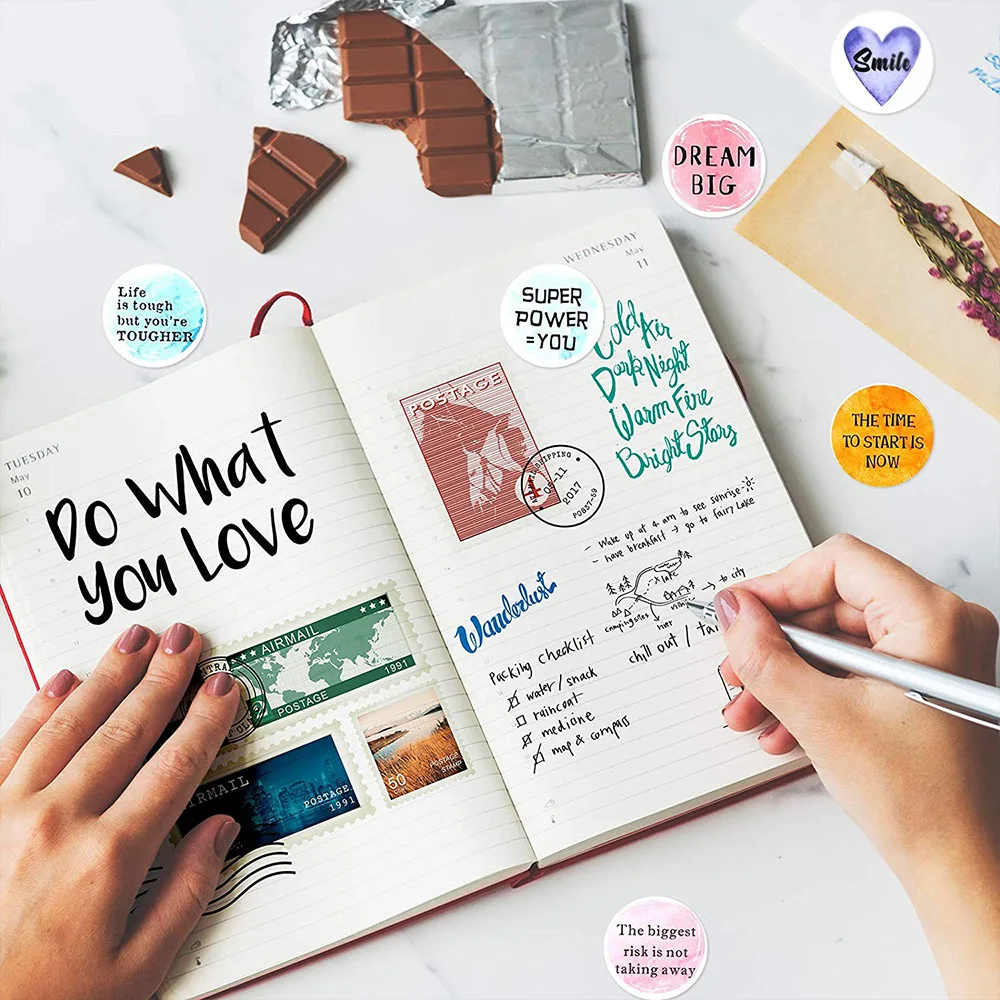 Smile
DREAM
BIG
Life
is tough
but you're
TOUGHER
SUPER
POWER
=YOU
THE TIME
TO START IS
NOW
The biggest
risk is not
taking away
TUESDAY
May
10
Do What
you Love
AIRMAIL
POSTAGE
1991
POSTAGE
1991
50
POSTAGE
STAMP
WEDNESDAY
May
11
POSTAGE
SHIPPING
05-11
2017
Cold Air
Dark Night
Warm Fire
Bright Stars
- Wake up at 4 am to see sunrise
- have breakfast → go to Fairy Lake
lake
→ to city
camping sites
river
Wanderlust
Packing Checklist
water / snack
raincoat
medicine
map & compass
chill out /